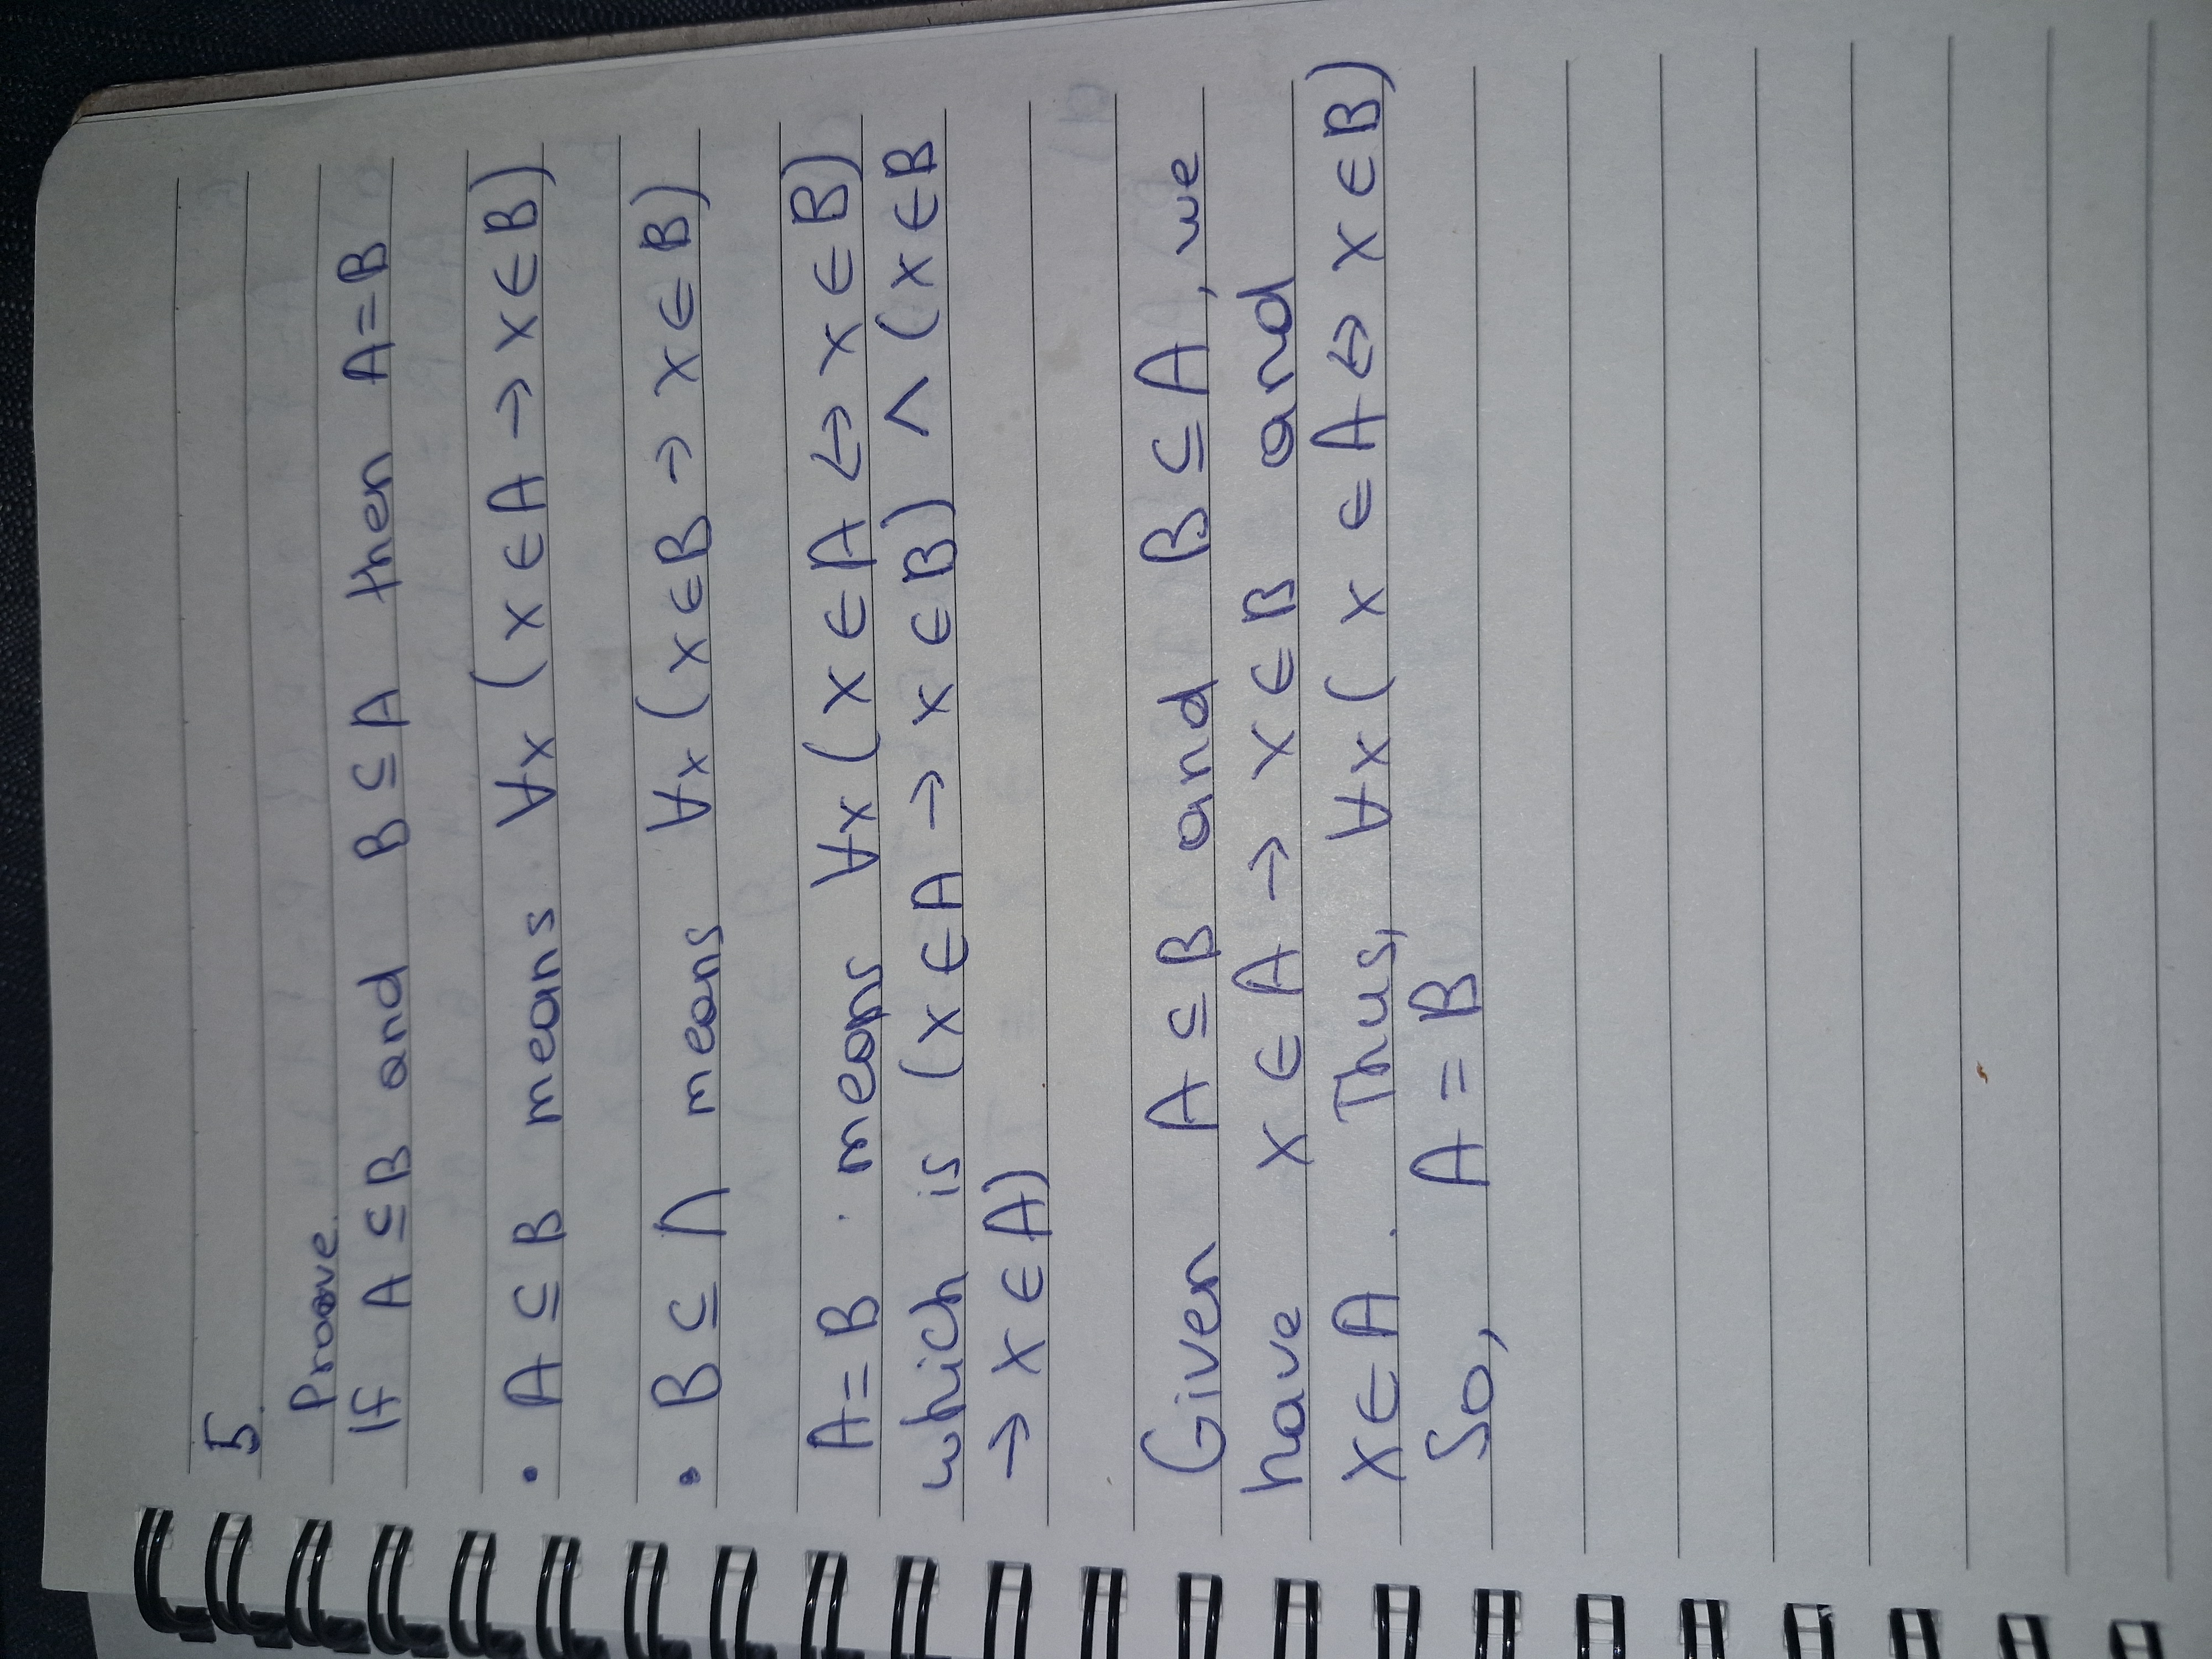 5.
Proove.
If A ⊆ B and B ⊆ A then A = B
• A ⊆ B means ∀x (x ∈ A → x ∈ B)
• B ⊆ Λ means ∀x (x ∈ B → x ∈ B)
A = B means ∀x (x ∈ A ↔ x ∈ B)
which is (x ∈ A → x ∈ B) ∧ (x ∈ B
→ x ∈ A)
Given A ⊆ B and B ⊆ A, we
have x ∈ A → x ∈ B and
x ∈ A. Thus, ∀x ( x ∈ A ↔ x ∈ B)
So, A = B